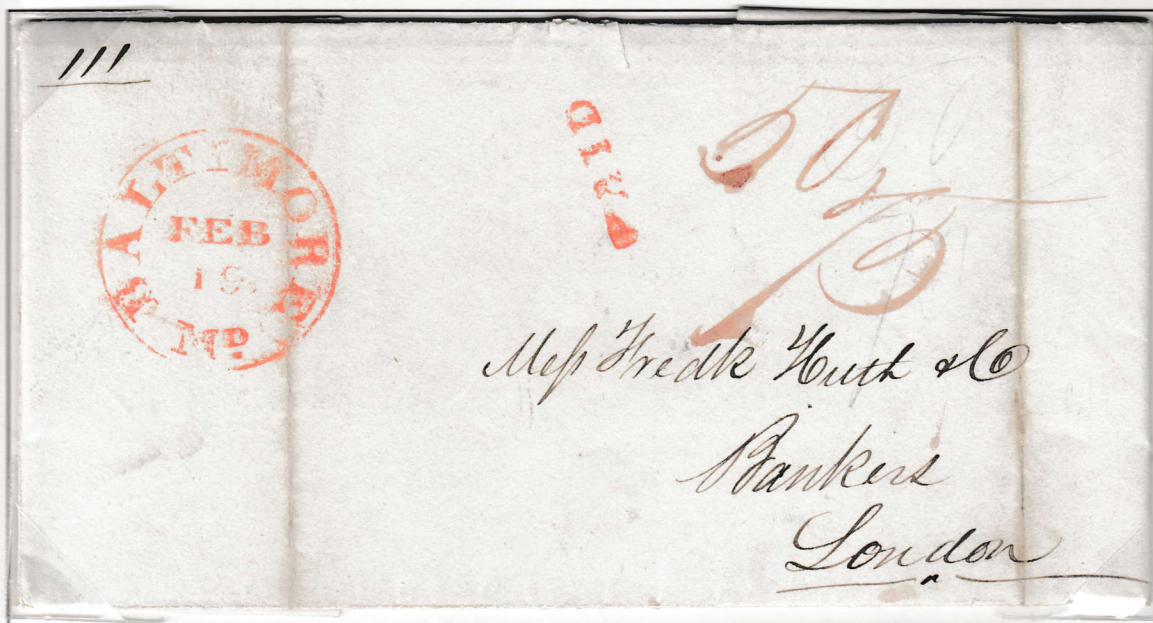 111
BALTIMORE
FEB
19
MD
PAID
Mess Fredk Huth & Co
Bankers
London